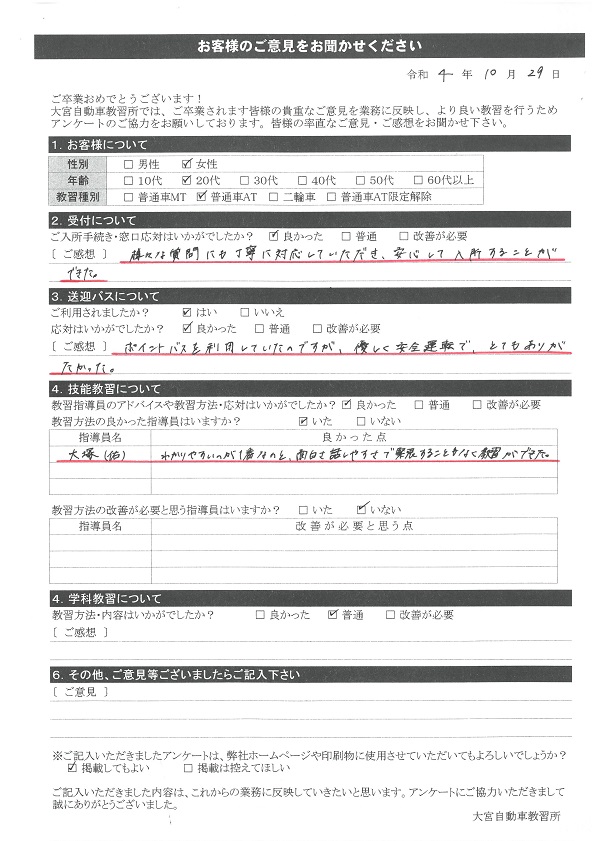 お客様のご意見をお聞かせください
令和 4 年 10 月 29 日
ご卒業おめでとうございます！
大宮自動車教習所では、ご卒業されます皆様の貴重なご意見を業務に反映し、より良い教習を行うため
アンケートのご協力をお願いしております。皆様の率直なご意見・ご感想をお聞かせ下さい。
1. お客様について
性別 □ 男性 ☑ 女性
年齢 □ 10代 ☑ 20代 □ 30代 □ 40代 □ 50代 □ 60代以上
教習種別 □ 普通車MT ☑ 普通車AT □ 二輪車 □ 普通車AT限定解除
2. 受付について
ご入所手続き・窓口応対はいかがでしたか？ ☑ 良かった □ 普通 □ 改善が必要
［ ご感想 ］ 様々な質問にも丁寧に対応していただき、安心して入所することが
できた。
3. 送迎バスについて
ご利用されましたか？ ☑ はい □ いいえ
応対はいかがでしたか？ ☑ 良かった □ 普通 □ 改善が必要
［ ご感想 ］ ポイントバスを利用していたのですが、優しく安全運転で、とてもありが
たかった。
4. 技能教習について
教習指導員のアドバイスや教習方法・応対はいかがでしたか？ ☑ 良かった □ 普通 □ 改善が必要
教習方法の良かった指導員はいますか？ ☑ いた □ いない
指導員名 良かった点
大塚（佑） わかりやすいのが1番なのと、面白さ話しやすさで緊張することもなく教習ができた。
教習方法の改善が必要と思う指導員はいますか？ □ いた ☑ いない
指導員名 改善が必要と思う点
4. 学科教習について
教習方法・内容はいかがでしたか？ □ 良かった ☑ 普通 □ 改善が必要
［ ご感想 ］
6. その他、ご意見等ございましたらご記入下さい
［ ご意見 ］
※ご記入いただきましたアンケートは、弊社ホームページや印刷物に使用させていただいてもよろしいでしょうか？
☑ 掲載してもよい □ 掲載は控えてほしい
ご記入いただきました内容は、これからの業務に反映していきたいと思います。アンケートにご協力いただきまして
誠にありがとうございました。
大宮自動車教習所